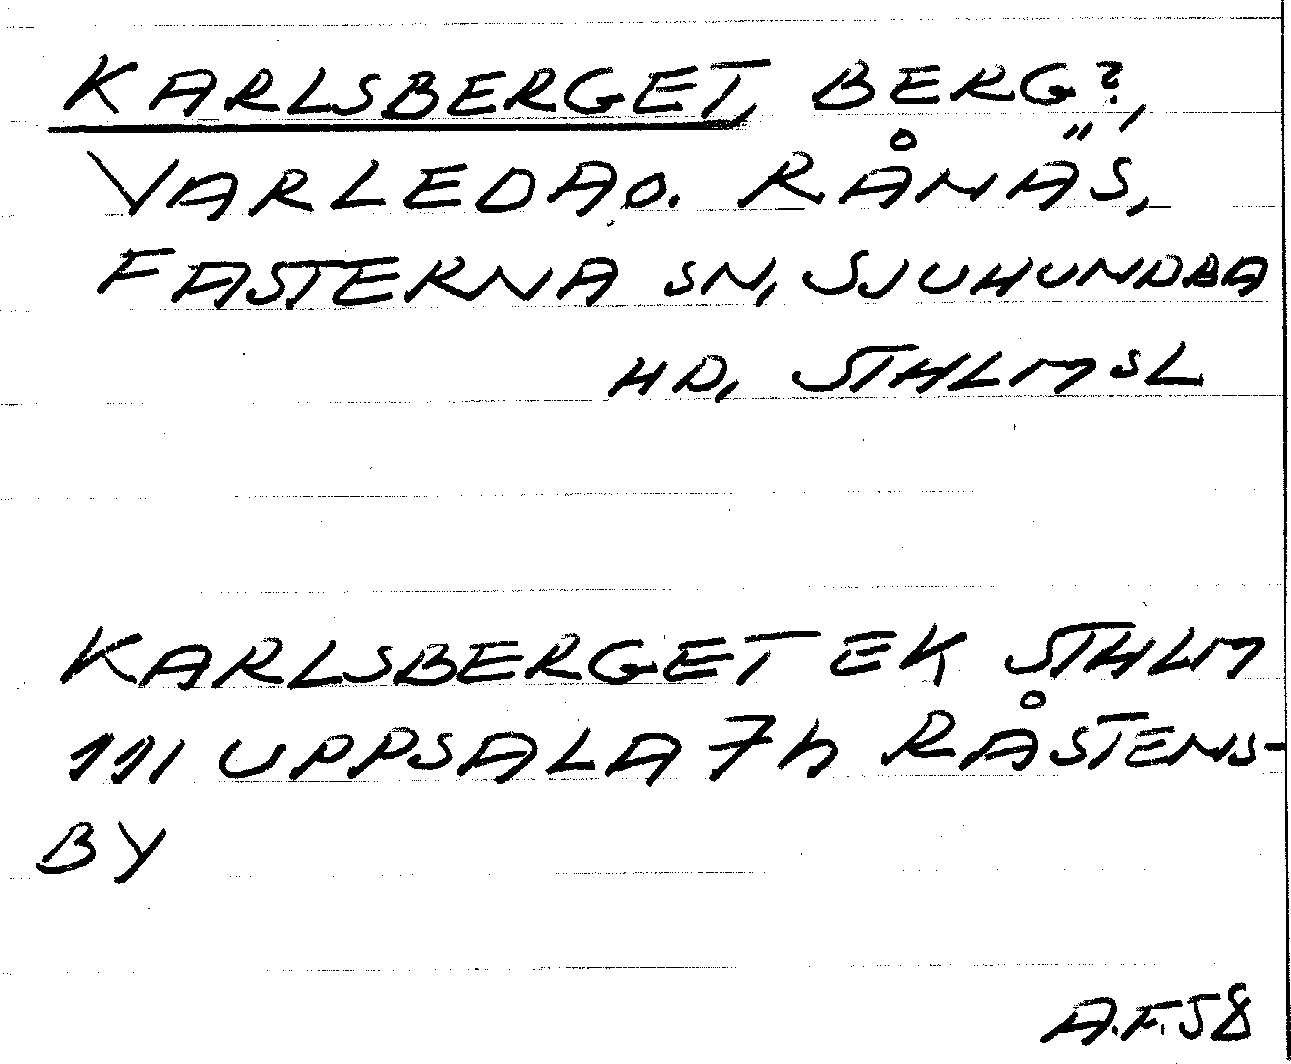 KARLSBERGET, BERG?,
VARLEDA O. RÅNÄS,
FASTERNA SN, SJUHUNDRA
HD, STHLMSL
KARLSBERGET EK STHLM
111 UPPSALA 7h RÅSTENS-
BY
A.F.58